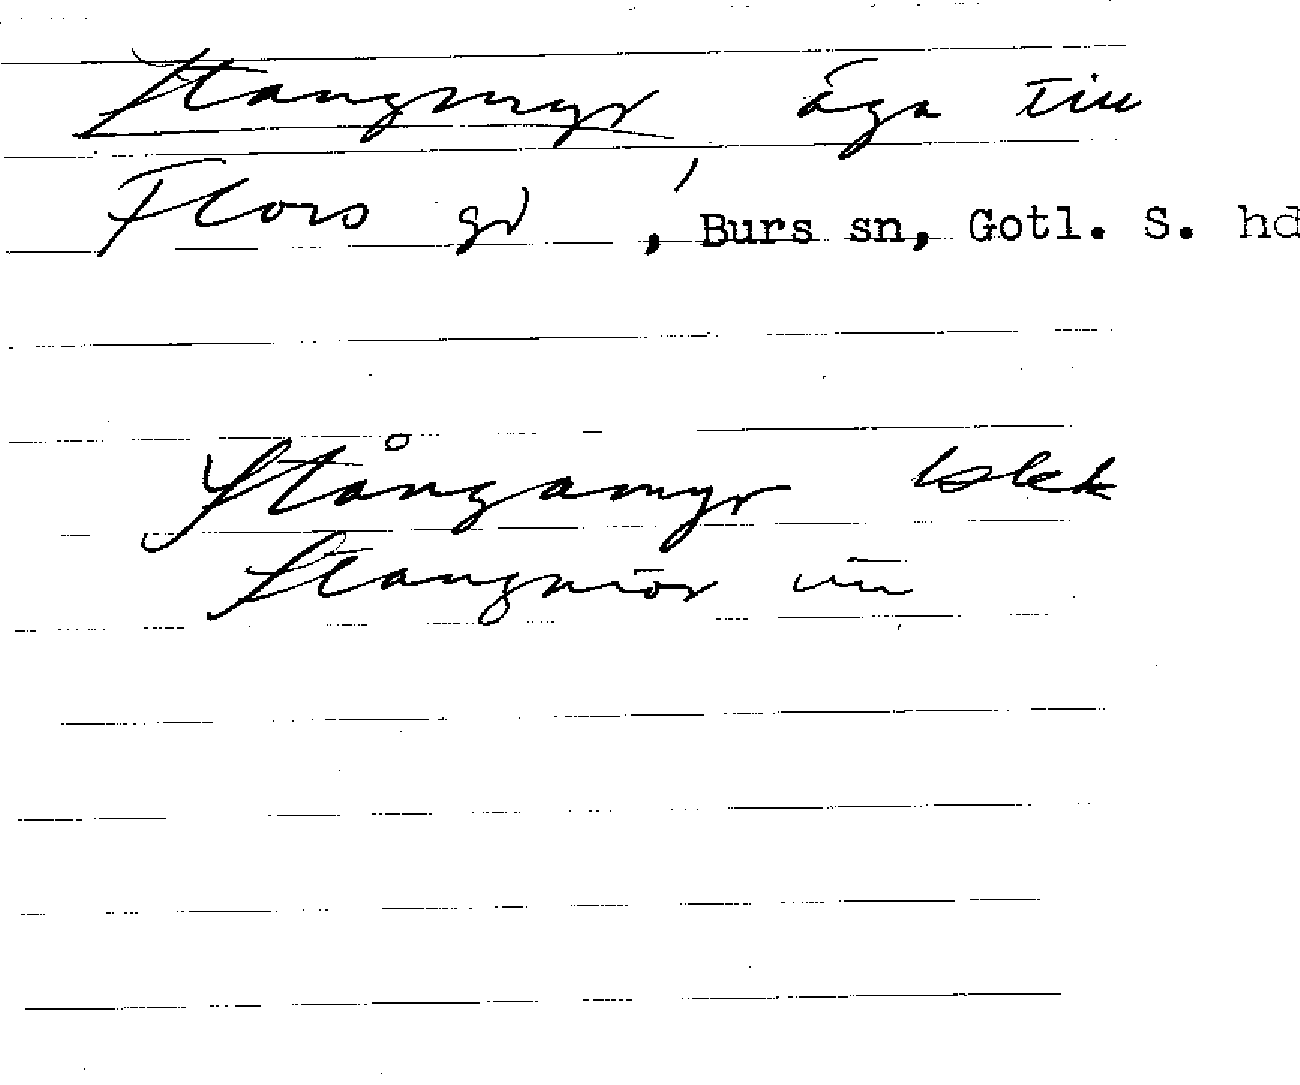 Stangmyr, äga till
Flors gd, Burs sn, Gotl. S. hd
Stångamyr blek
Stangmör